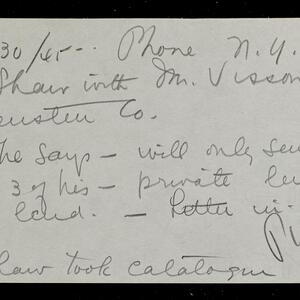 30/45-- Phone N.Y.
Shaw with Mr. Visson
enstein Co.
he says - will only sen
3 of his - private len
land. - Letter in
haw took catalogue